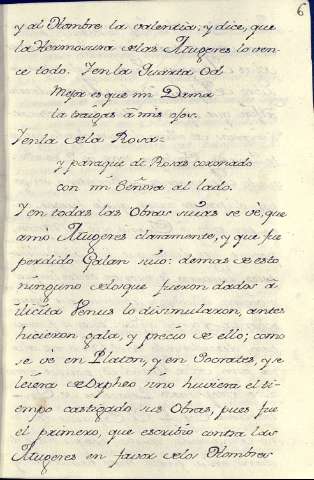 6
y al Hombre la valentia; y dice, que
la Hermosura de las Mugeres lo ven-
ce todo. Y en la Quarta Od
Mejor es que mi Dama
la traigas à mis ojos.
Y en la de la Rosa:
y paraque de Rosas coronado
con mi Señora al lado.
Y en todas las Obras suias se vè, que
amò Mugeres claramente, y que fue
perdido Galan suio: demas de esto
ninguno de los que fueron dados à
ilicita Venus lo disimularon, antes
hicieron gala, y precio de ello; como
se vè en Platon, y en Socrates, y se
leiera de Orpheo sino huviera el ti-
empo castigado sus Obras, pues fue
el primero, que escribiò contra las
Mugeres en favor de los Hombres